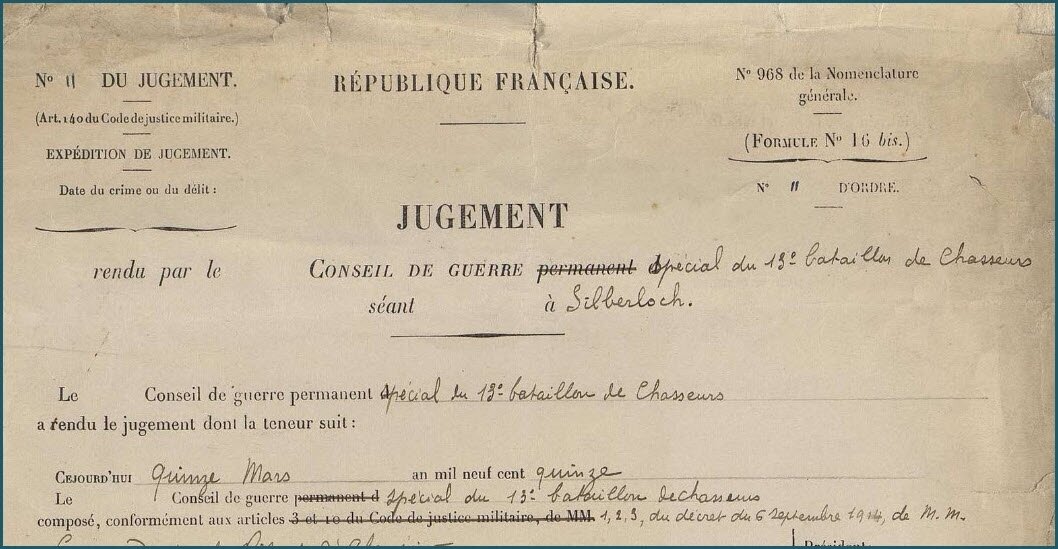 Nº 11 DU JUGEMENT.
(Art. 140 du Code de justice militaire.)
EXPÉDITION DE JUGEMENT.
Date du crime ou du délit :
RÉPUBLIQUE FRANÇAISE.
Nº 968 de la Nomenclature
générale.
(FORMULE Nº 16 bis.)
Nº 11 D'ORDRE.
JUGEMENT
rendu par le CONSEIL DE GUERRE permanent spécial du 13e bataillon de Chasseurs
séant à Silberloch.
Le Conseil de guerre permanent spécial du 13e bataillon de Chasseurs
a rendu le jugement dont la teneur suit :
CEJOURD'HUI quinze Mars an mil neuf cent quinze
Le Conseil de guerre permanent d spécial du 13e bataillon de chasseurs
composé, conformément aux articles 3 et 10 du Code de justice militaire, de MM. 1, 2, 3, du décret du 6 septembre 1914, de M.M.
Président